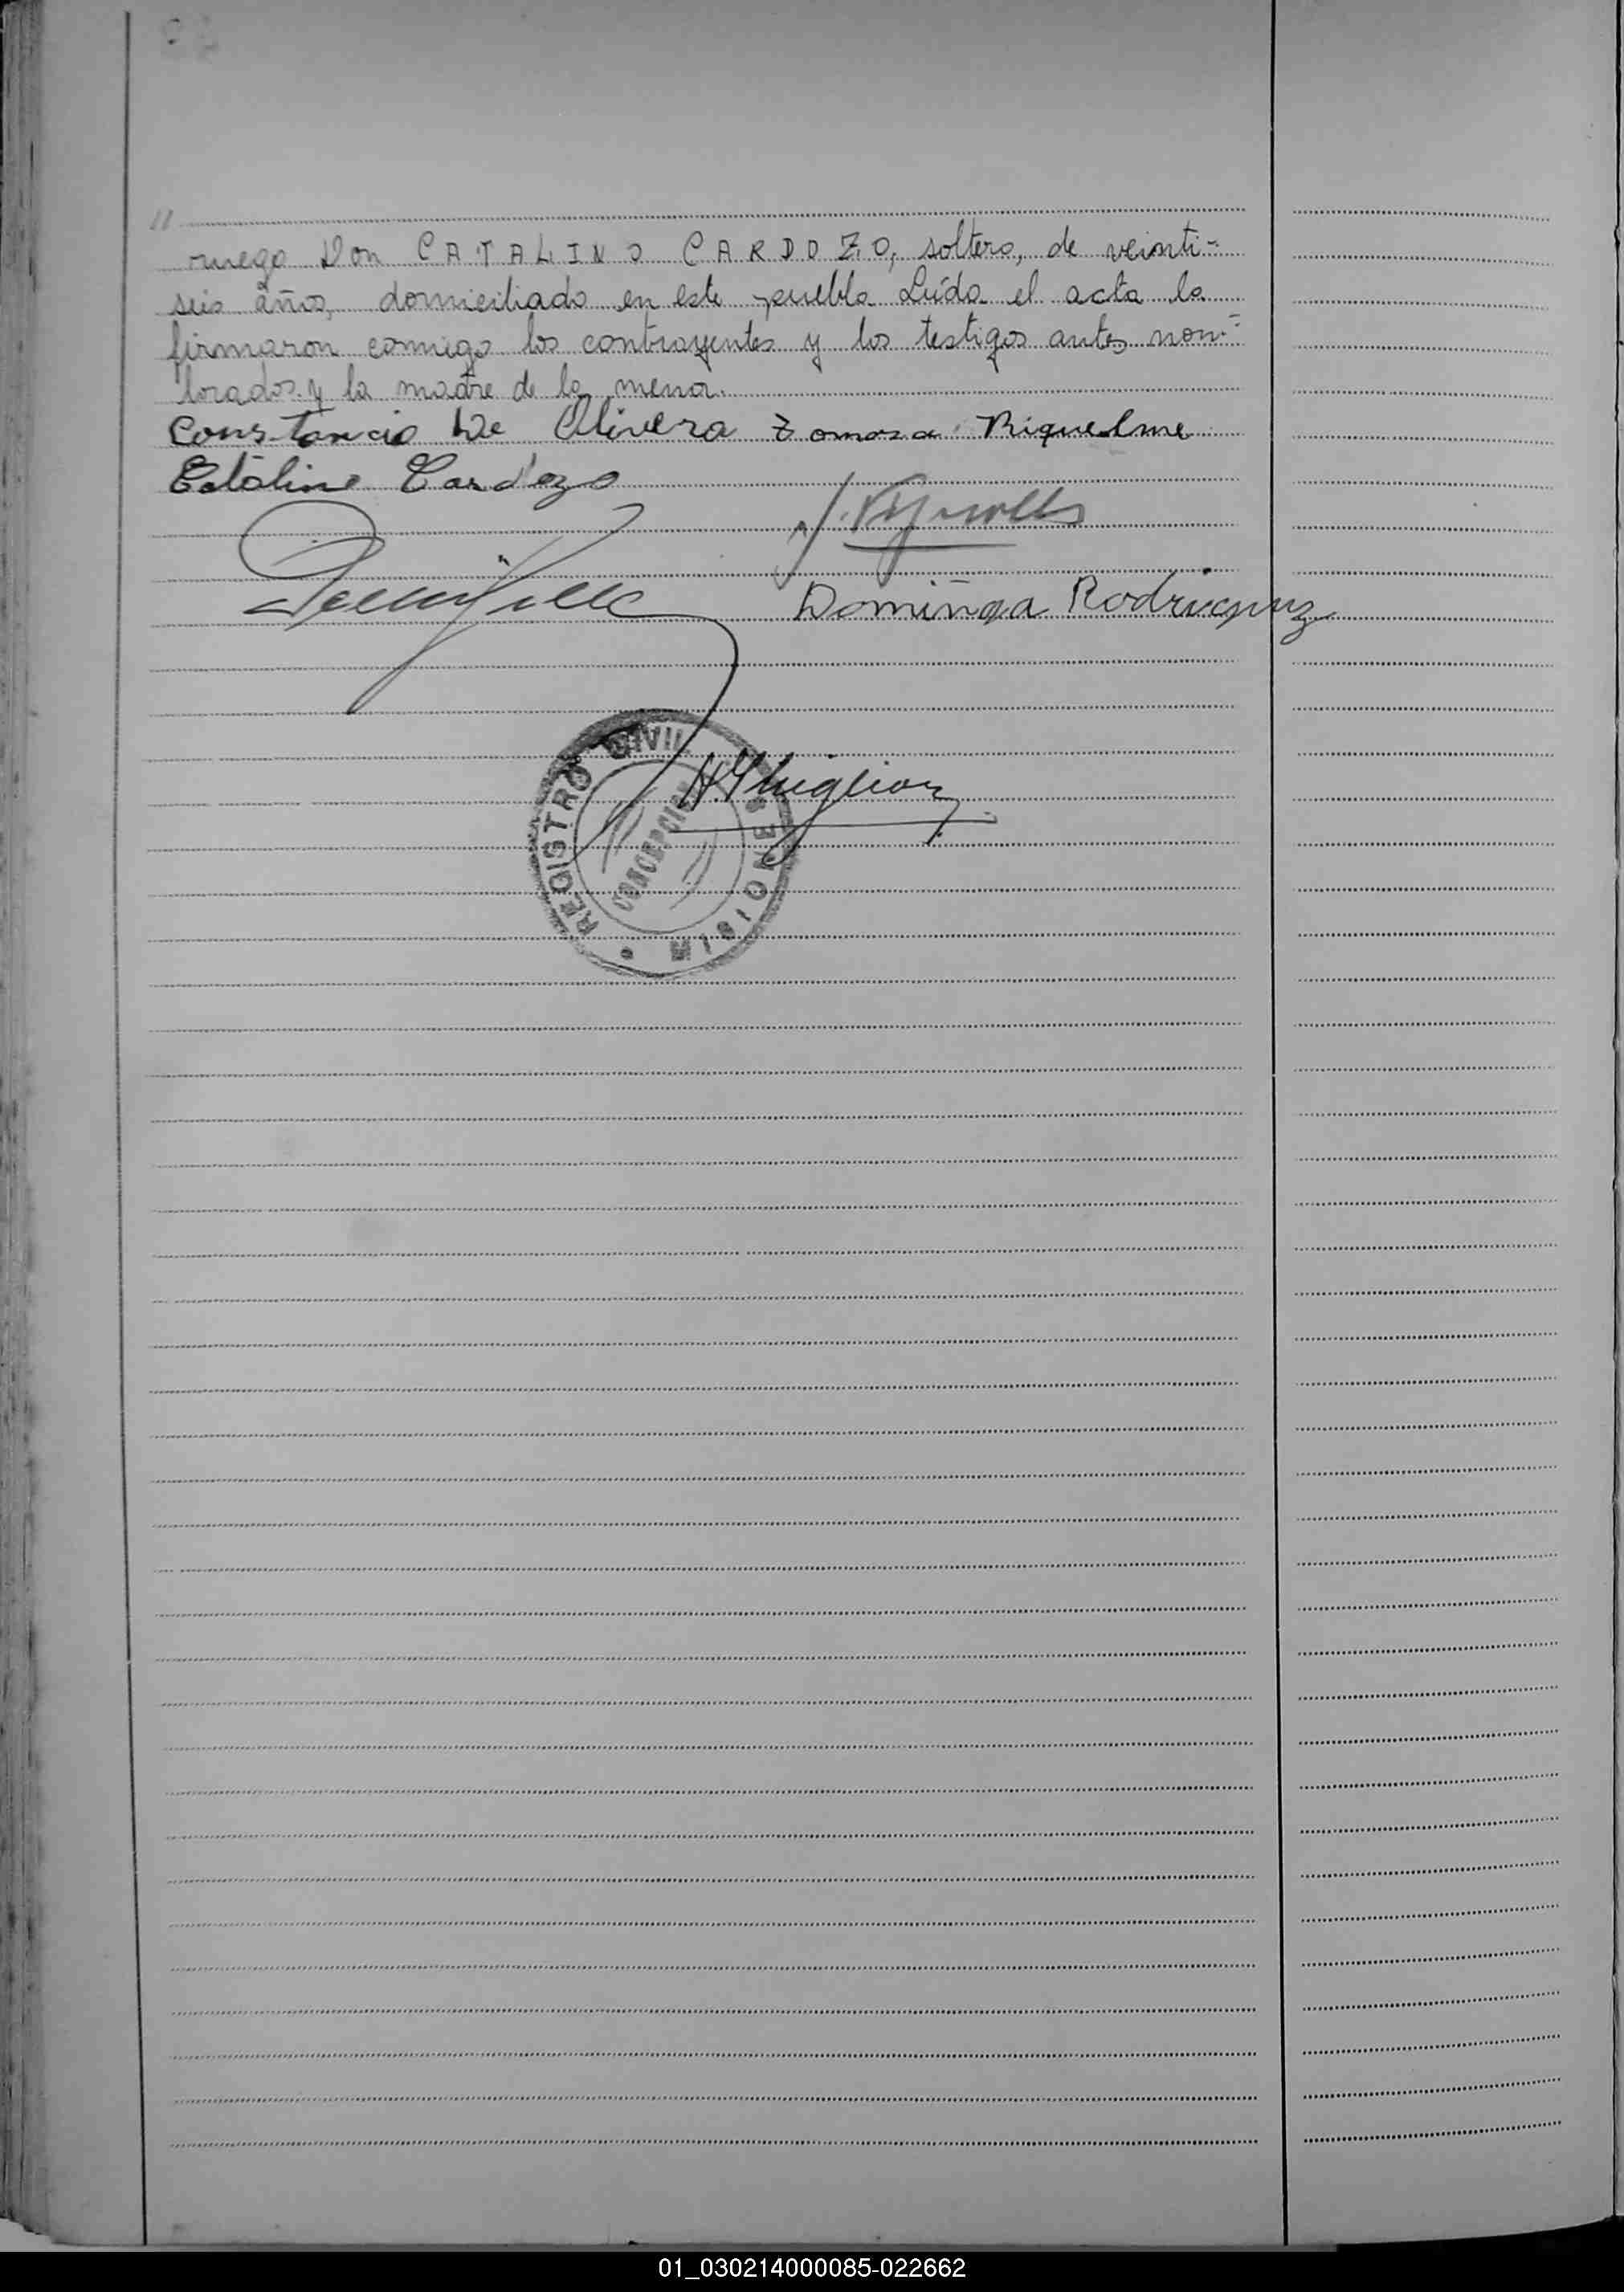 ruego Don CATALINO CARDOZO, soltero, de veinti-
seis años, domiciliado en este pueblo Leída el acta la
firmaron conmigo los contrayentes y los testigos antes nom-
brados y la madre de la menor.
Constancio De Olivera Zomosa Riquelme
Catalino Cardozo
Dominga Rodriguez
REGISTRO CIVIL
CONCEPCION
MISIONES
01_030214000085-022662